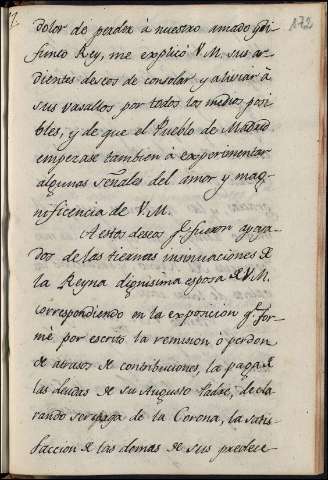 172
dolor de perder à nuestro amado y di
funto Rey, me explicó V.M. sus ar
dientes deseos de consolar y aliviar à
sus vasallos por todos los medios posi
bles, y de que el Pueblo de Madrid
empezase tambien à experimentar
algunas señales del amor y mag
nificencia de V.M.
A estos deseos qe. fueron apoya
dos de las tiernas insinuaciones de
la Reyna dignisima esposa de V.M.
correspondiendo en la exposicion qe. for
mè por escrito la remision ò perdon
de atrasos de contribuciones, la paga de
las deudas de su Augusto Padre, decla
rando ser carga de la Corona, la satis
faccion de las demas de sus predece